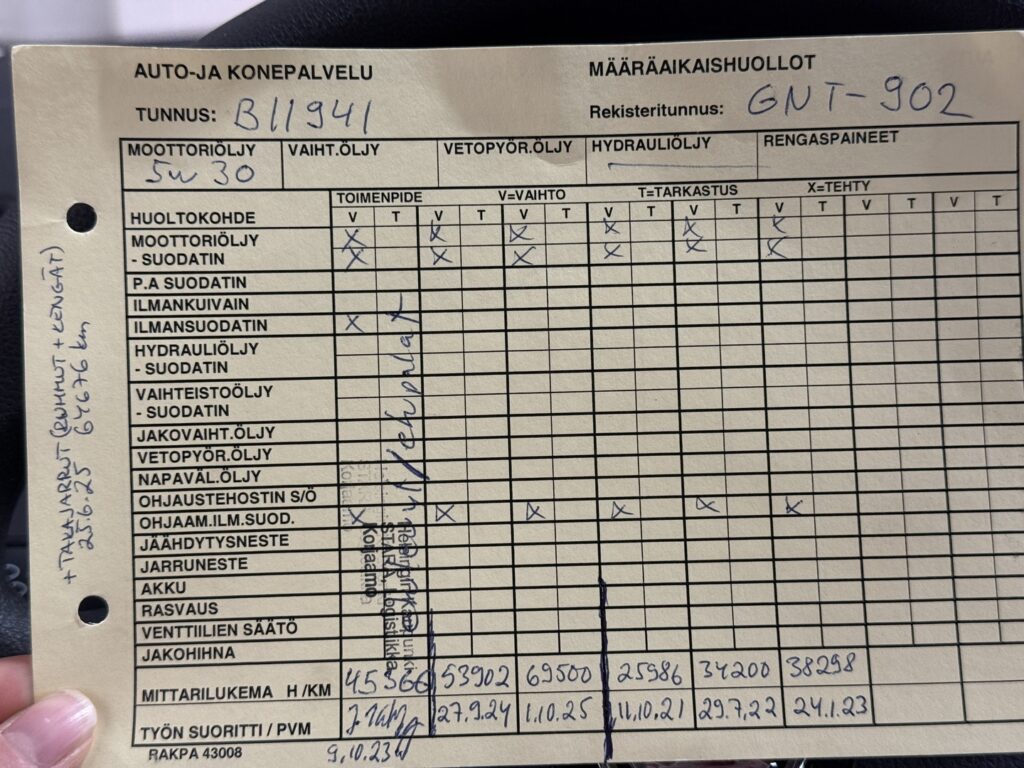 AUTO-JA KONEPALVELU
MÄÄRÄAIKAISHUOLLOT
TUNNUS: B11941
Rekisteritunnus: GNT-902
MOOTTORIÖLJY VAIHT.ÖLJY VETOPYÖR.ÖLJY HYDRAULIÖLJY RENGASPAINEET
5w30
TOIMENPIDE V=VAIHTO T=TARKASTUS X=TEHTY
HUOLTOKOHDE V T V T V T V T V T V T V T V T
MOOTTORIÖLJY X X X X X X
- SUODATIN X X X X X X
P.A SUODATIN
ILMANKUIVAIN
ILMANSUODATIN X
HYDRAULIÖLJY
- SUODATIN
VAIHTEISTOÖLJY
- SUODATIN
JAKOVAIHT.ÖLJY
VETOPYÖR.ÖLJY
NAPAVÄL.ÖLJY
OHJAUSTEHOSTIN S/Ö
OHJAAM.ILM.SUOD. X X X X X X
JÄÄHDYTYSNESTE
JARRUNESTE
AKKU
RASVAUS
VENTTIILIEN SÄÄTÖ
JAKOHIHNA
MITTARILUKEMA H /KM 45366 53902 69500 25986 34200 38298
TYÖN SUORITTI / PVM 27.9.24 1.10.25 11.10.21 29.7.22 24.1.23
9.10.23
RAKPA 43008
+ TAKAJARRUT (RUMMUT + KENGÄT)
25.6.25 64676 km
Helsingin kaupunki
STARA, Logistiikka
Korjaamo